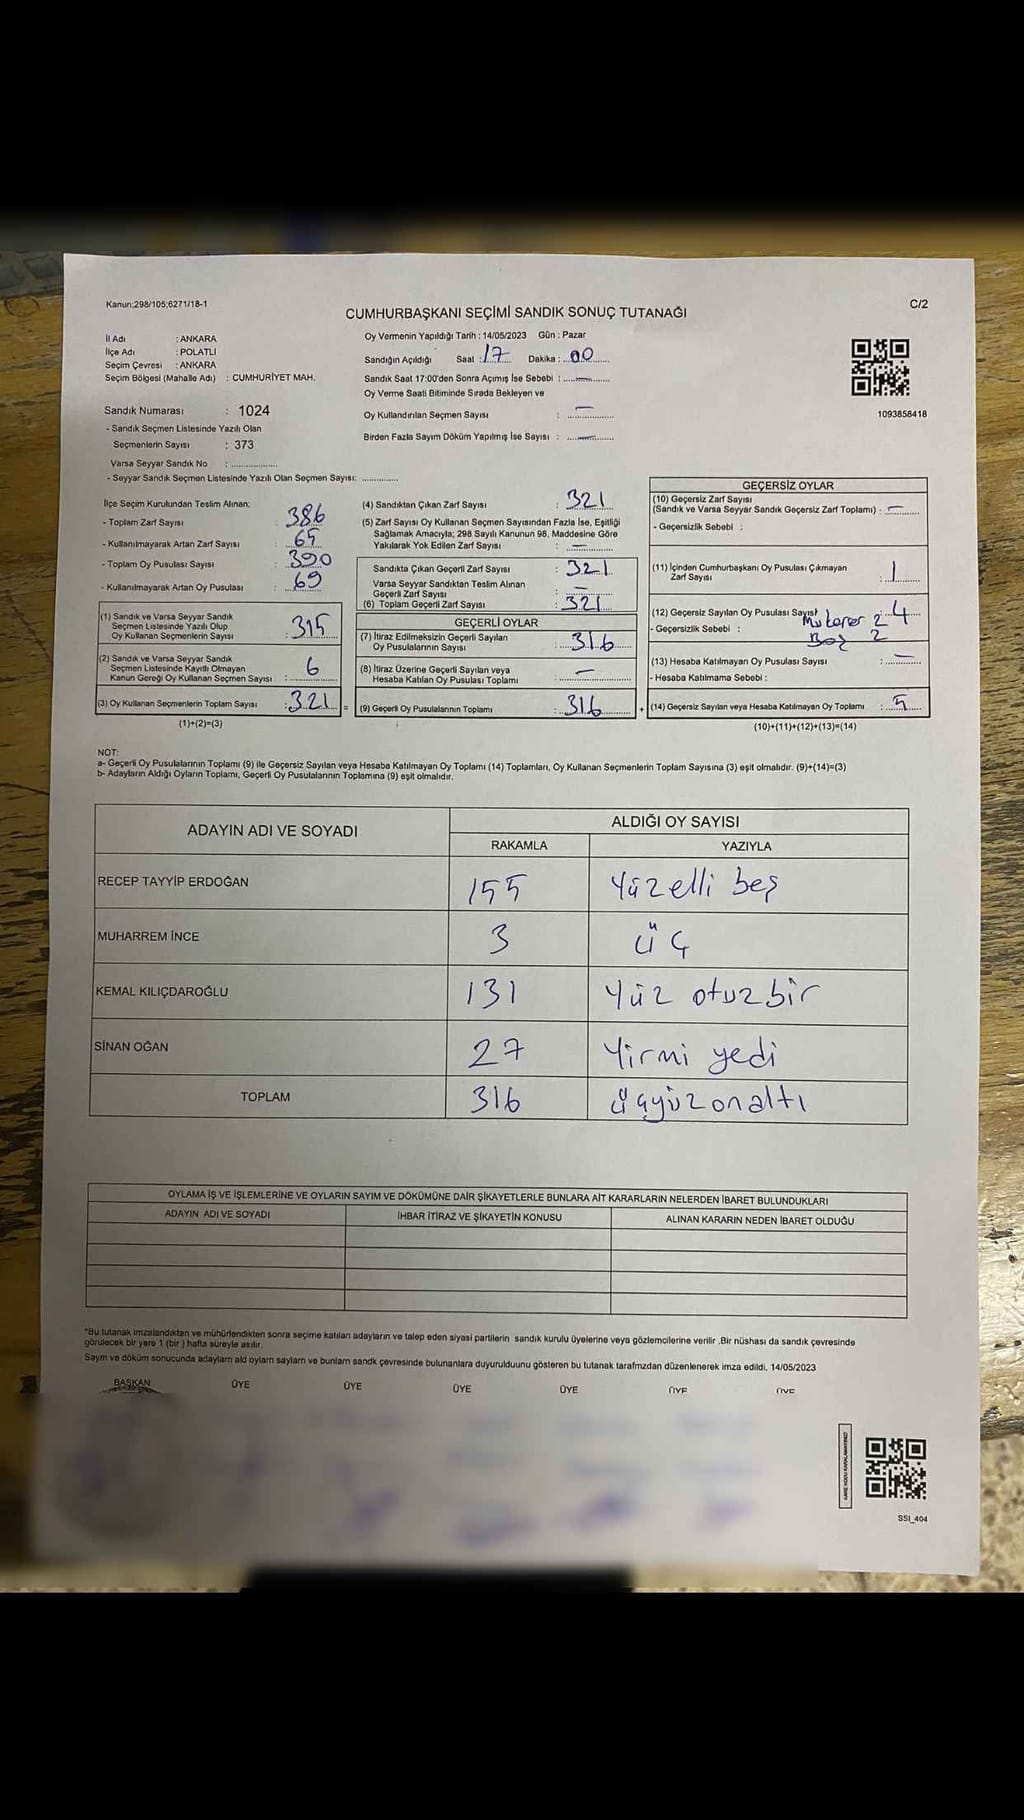 Kanun:298/105;6271/18-1
C/2
CUMHURBAŞKANI SEÇİMİ SANDIK SONUÇ TUTANAĞI
İl Adı : ANKARA
İlçe Adı : POLATLI
Seçim Çevresi : ANKARA
Seçim Bölgesi (Mahalle Adı) : CUMHURİYET MAH.
Sandık Numarası : 1024
- Sandık Seçmen Listesinde Yazılı Olan
Seçmenlerin Sayısı : 373
Varsa Seyyar Sandık No : ................
- Seyyar Sandık Seçmen Listesinde Yazılı Olan Seçmen Sayısı: .............
Oy Vermenin Yapıldığı Tarih : 14/05/2023 Gün : Pazar
Sandığın Açıldığı Saat : 17 Dakika : 00
Sandık Saat 17:00'den Sonra Açımış İse Sebebi : —
Oy Verme Saati Bitiminde Sırada Bekleyen ve
Oy Kullandırılan Seçmen Sayısı : —
Birden Fazla Sayım Döküm Yapılmış İse Sayısı : —
1093858418
İlçe Seçim Kurulundan Teslim Alınan;
- Toplam Zarf Sayısı : 386
- Kullanılmayarak Artan Zarf Sayısı : 65
- Toplam Oy Pusulası Sayısı : 390
- Kullanılmayarak Artan Oy Pusulası : 69
(1) Sandık ve Varsa Seyyar Sandık
Seçmen Listesinde Yazılı Olup
Oy Kullanan Seçmenlerin Sayısı : 315
(2) Sandık ve Varsa Seyyar Sandık
Seçmen Listesinde Kayıtlı Olmayan
Kanun Gereği Oy Kullanan Seçmen Sayısı : 6
(3) Oy Kullanan Seçmenlerin Toplam Sayısı : 321 =
(1)+(2)=(3)
(4) Sandıktan Çıkan Zarf Sayısı : 321
(5) Zarf Sayısı Oy Kullanan Seçmen Sayısından Fazla İse, Eşitliği
Sağlamak Amacıyla; 298 Sayılı Kanunun 98. Maddesine Göre
Yakılarak Yok Edilen Zarf Sayısı : —
Sandıkta Çıkan Geçerli Zarf Sayısı : 321
Varsa Seyyar Sandıktan Teslim Alınan
Geçerli Zarf Sayısı : —
(6) Toplam Geçerli Zarf Sayısı : 321
GEÇERLİ OYLAR
(7) İtiraz Edilmeksizin Geçerli Sayılan
Oy Pusulalarının Sayısı : 316
(8) İtiraz Üzerine Geçerli Sayılan veya
Hesaba Katılan Oy Pusulası Toplamı : —
(9) Geçerli Oy Pusulalarının Toplamı : 316 +
GEÇERSİZ OYLAR
(10) Geçersiz Zarf Sayısı
(Sandık ve Varsa Seyyar Sandık Geçersiz Zarf Toplamı) : —
- Geçersizlik Sebebi :
(11) İçinden Cumhurbaşkanı Oy Pusulası Çıkmayan
Zarf Sayısı : 1
(12) Geçersiz Sayılan Oy Pusulası Sayısı : 4
- Geçersizlik Sebebi : Mükerer 2
Boş 2
(13) Hesaba Katılmayan Oy Pusulası Sayısı : —
- Hesaba Katılmama Sebebi :
(14) Geçersiz Sayılan veya Hesaba Katılmayan Oy Toplamı : 5
(10)+(11)+(12)+(13)=(14)
NOT:
a- Geçerli Oy Pusulalarının Toplamı (9) ile Geçersiz Sayılan veya Hesaba Katılmayan Oy Toplamı (14) Toplamları, Oy Kullanan Seçmenlerin Toplam Sayısına (3) eşit olmalıdır. (9)+(14)=(3)
b- Adayların Aldığı Oyların Toplamı, Geçerli Oy Pusulalarının Toplamına (9) eşit olmalıdır.
ADAYIN ADI VE SOYADI ALDIĞI OY SAYISI
RAKAMLA YAZIYLA
RECEP TAYYİP ERDOĞAN 155 Yüzelli beş
MUHARREM İNCE 3 üç
KEMAL KILIÇDAROĞLU 131 Yüz otuzbir
SİNAN OĞAN 27 Yirmi yedi
TOPLAM 316 üçyüzonaltı
OYLAMA İŞ VE İŞLEMLERİNE VE OYLARIN SAYIM VE DÖKÜMÜNE DAİR ŞİKAYETLERLE BUNLARA AİT KARARLARIN NELERDEN İBARET BULUNDUKLARI
ADAYIN ADI VE SOYADI İHBAR İTİRAZ VE ŞİKAYETİN KONUSU ALINAN KARARIN NEDEN İBARET OLDUĞU
*Bu tutanak imzalandıktan ve mühürlendikten sonra seçime katılan adayların ve talep eden siyasi partilerin sandık kurulu üyelerine veya gözlemcilerine verilir .Bir nüshası da sandık çevresinde
görülecek bir yere 1 (bir ) hafta süreyle asılır.
Sayım ve döküm sonucunda adayların ald oyların sayların ve bunların sandk çevresinde bulunanlara duyurulduunu gösteren bu tutanak tarafmzdan düzenlenerek imza edildi. 14/05/2023
BAŞKAN ÜYE ÜYE ÜYE ÜYE ÜYE ÜYE
SSI_404